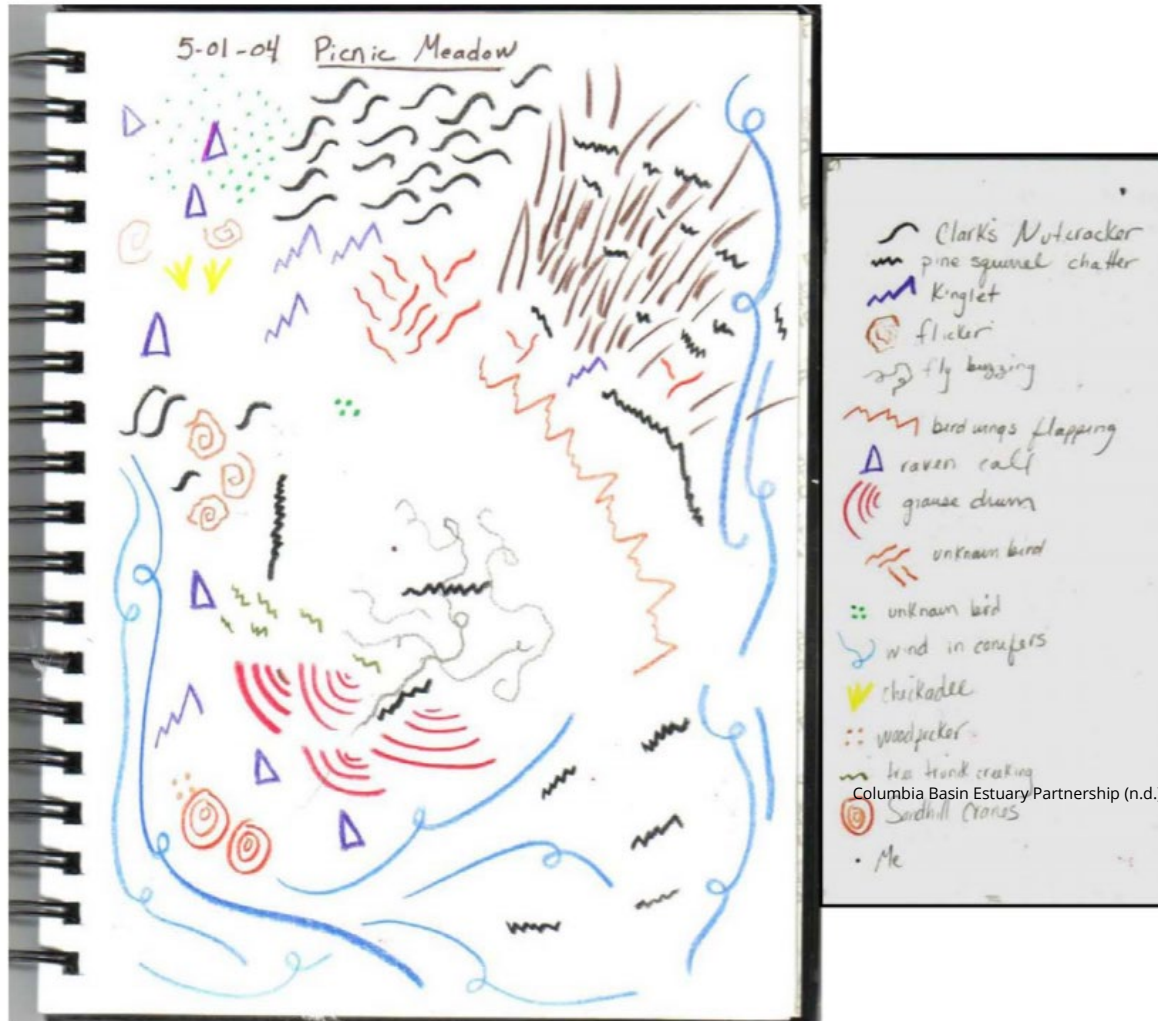 5-01-04 Picnic Meadow
Clark's Nutcracker
pine squirrel chatter
Kinglet
flicker
fly buzzing
bird wings flapping
raven call
grouse drum
unknown bird
unknown bird
wind in conifers
chickadee
woodpecker
tree trunk creaking
Columbia Basin Estuary Partnership (n.d.
Sandhill Cranes
Me